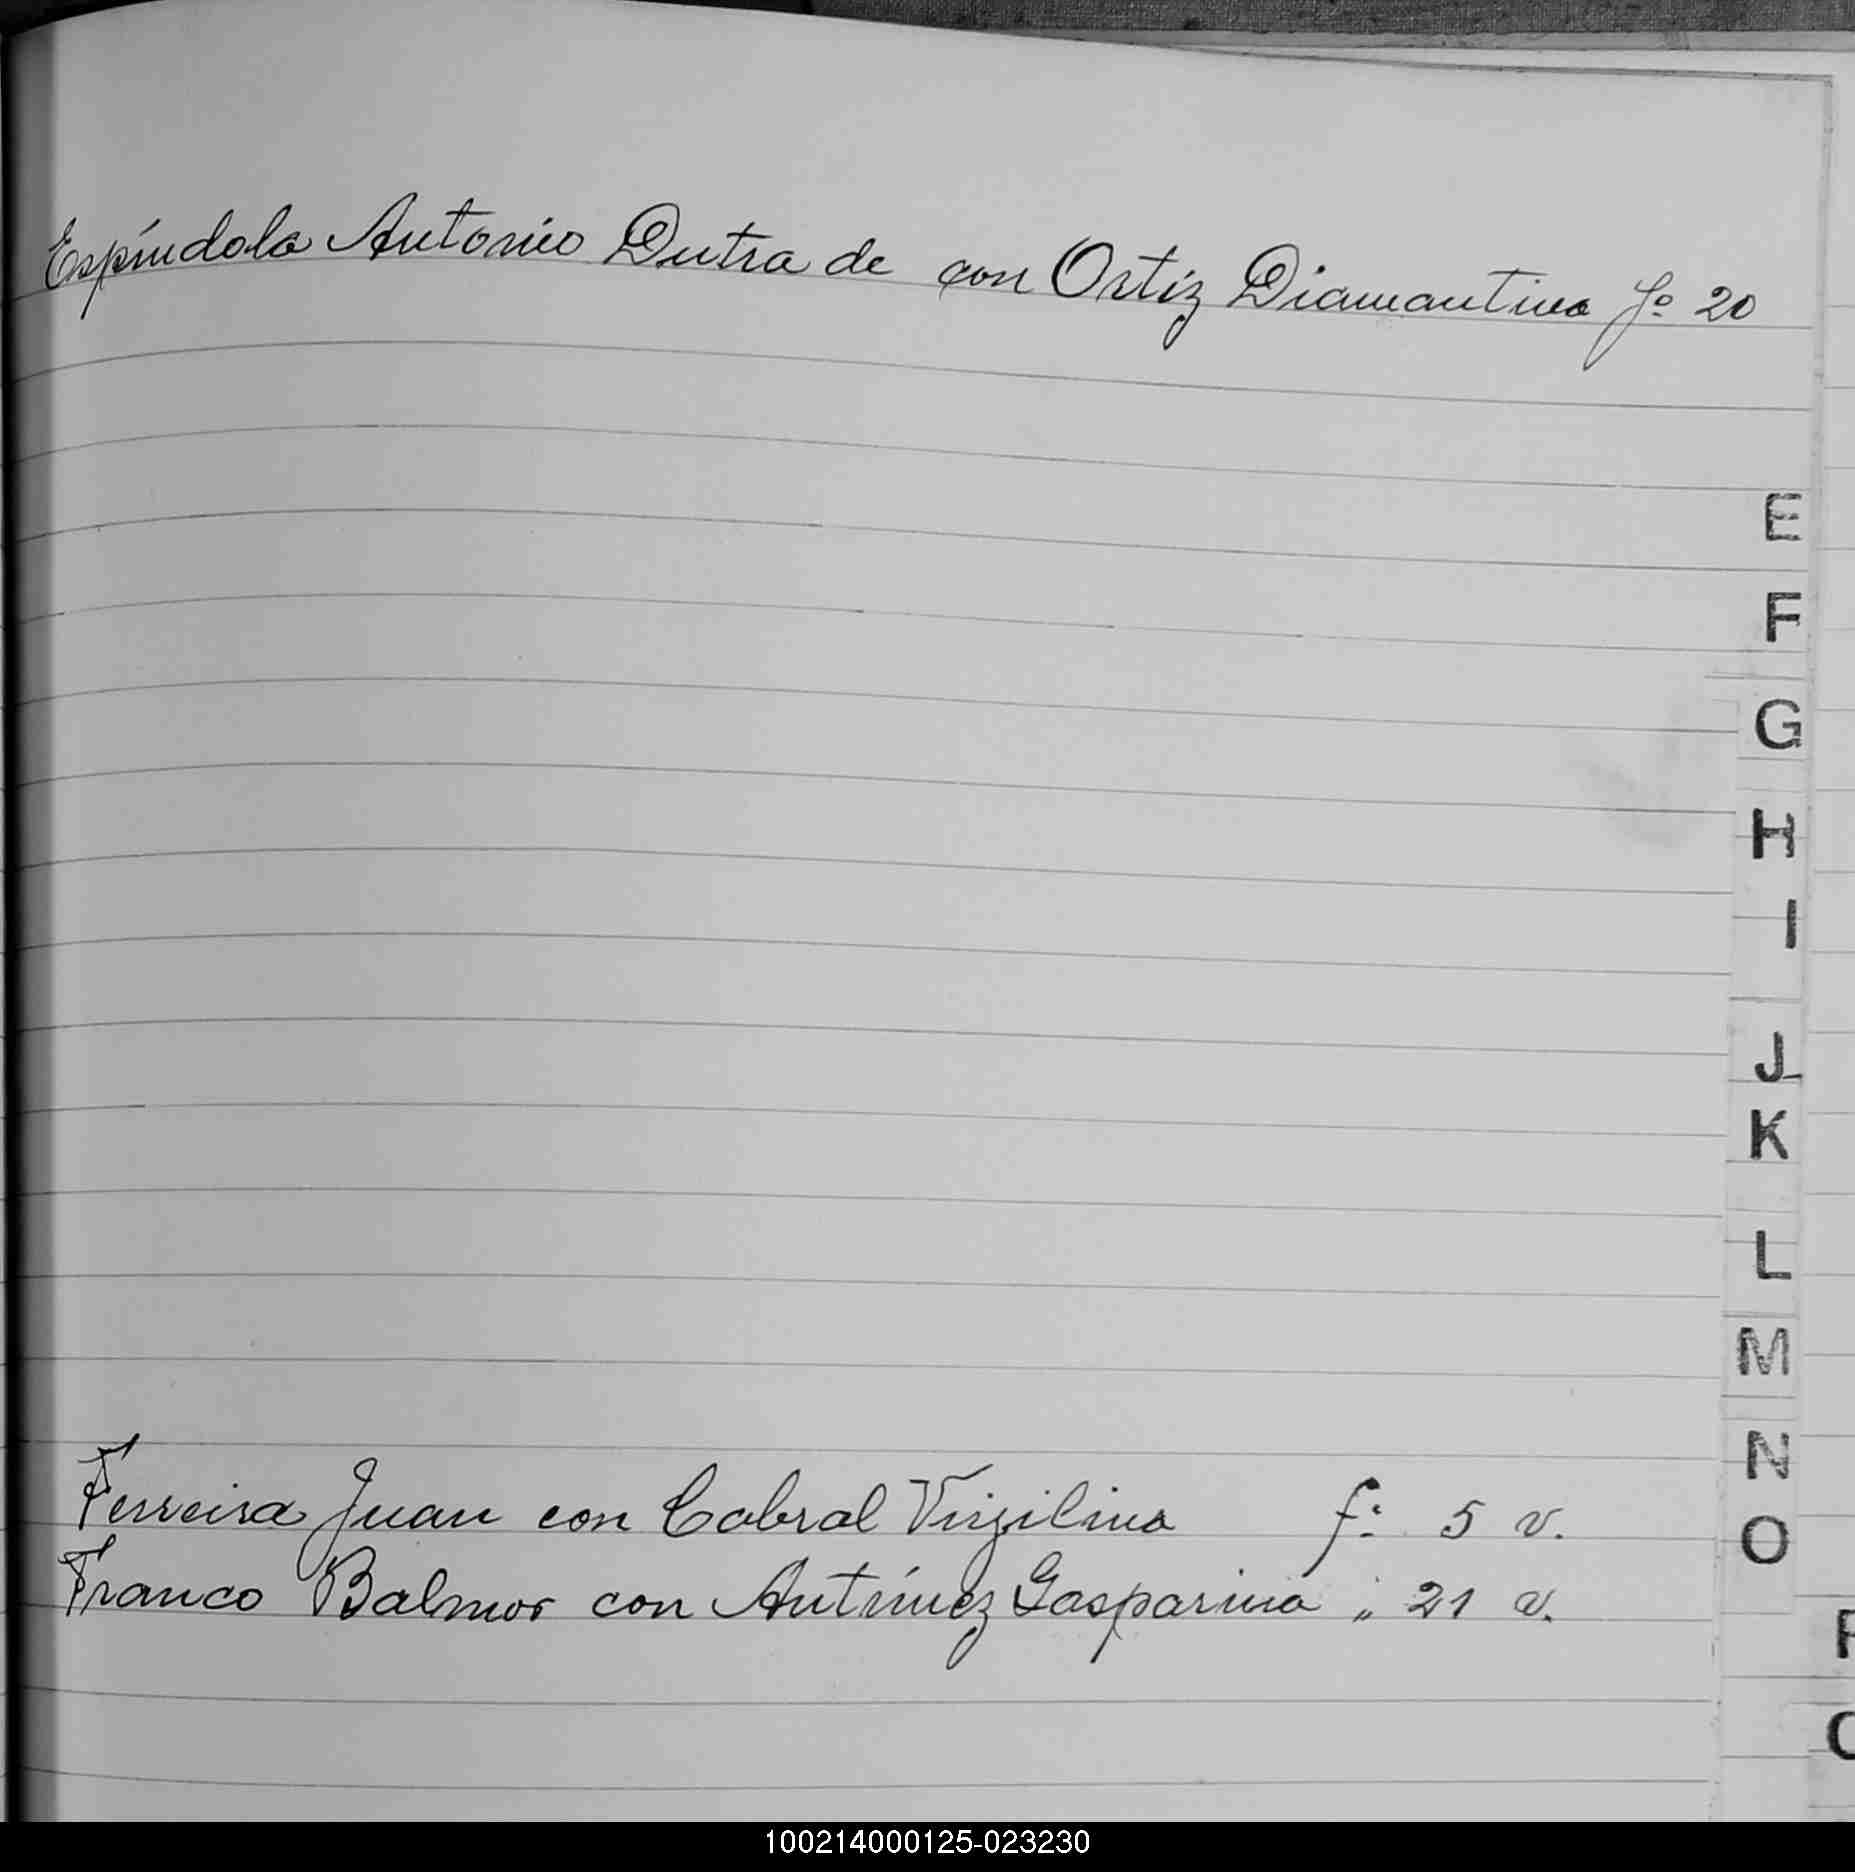 Espíndola Antonio Dutra de con Ortiz Diamantina fº 20
E
F
G
H
I
J
K
L
M
N
Ferreira Juan con Cabral Virgilina fº 5 v.
O
Franco Balmor con Antúnez Gasparina " 21 v.
100214000125-023230